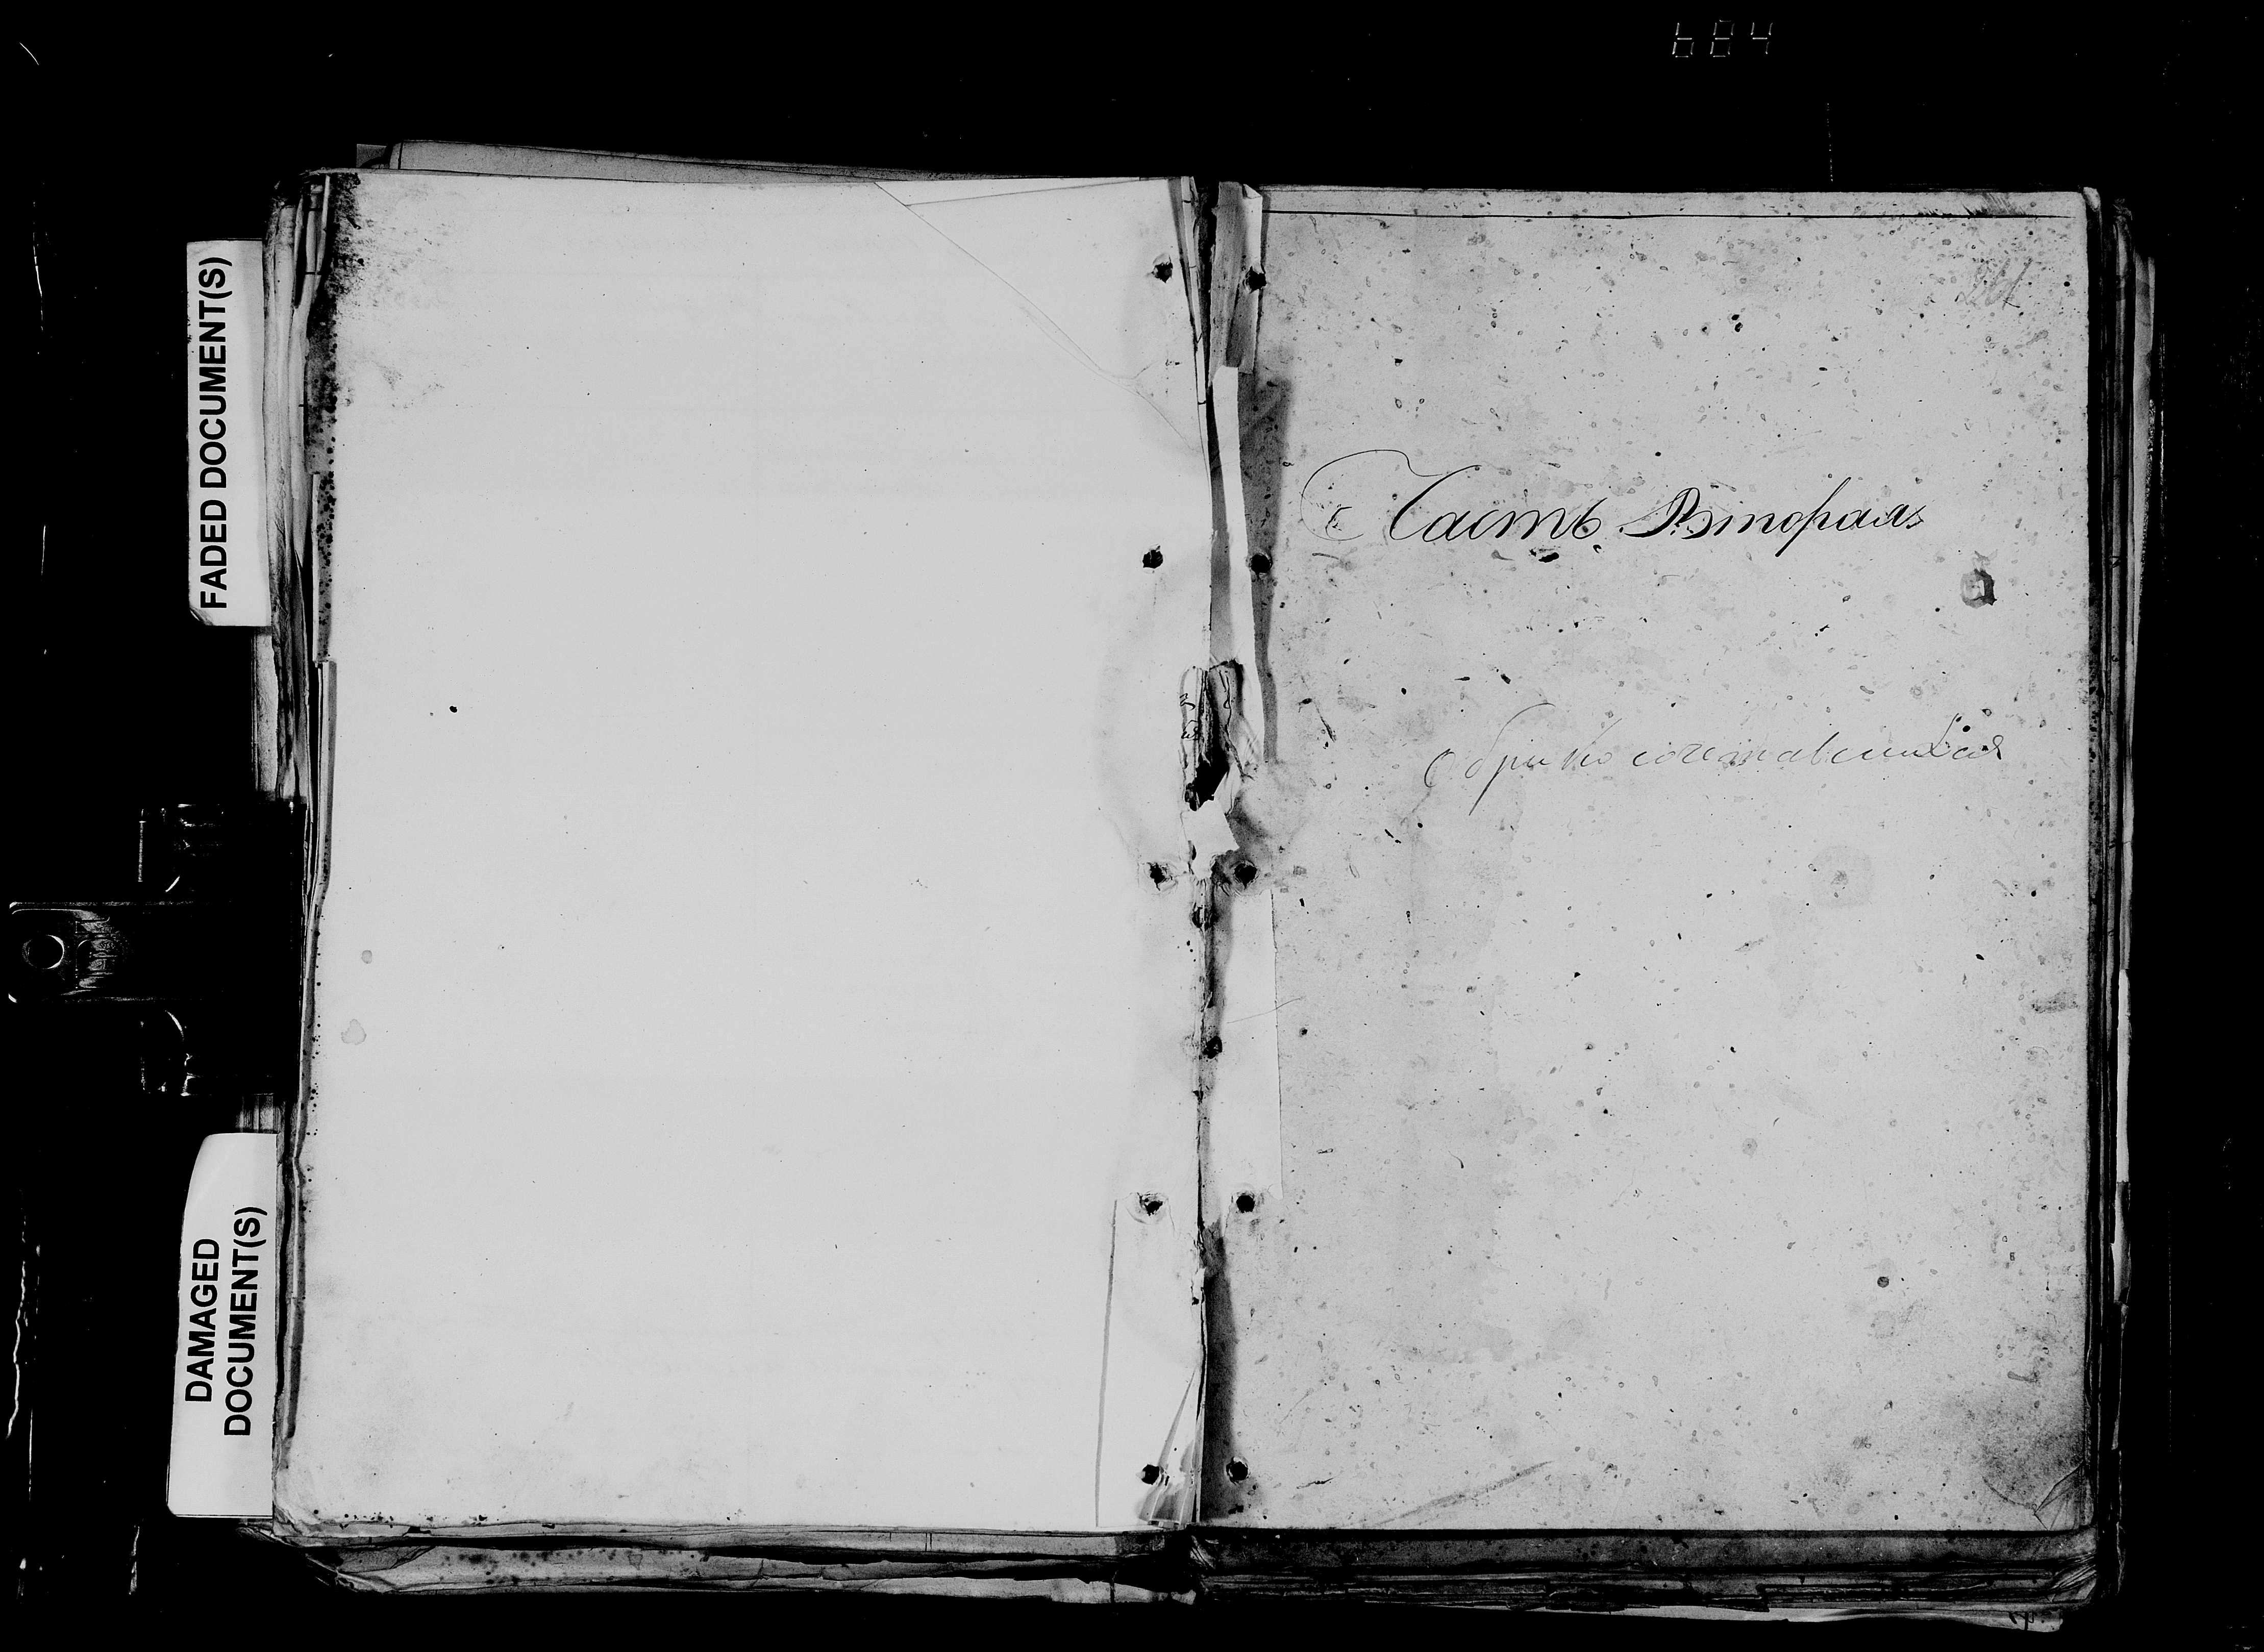 684
FADED DOCUMENT(S)
Часть Вторая
О бракосочетавшихся
DAMAGED
DOCUMENT(S)